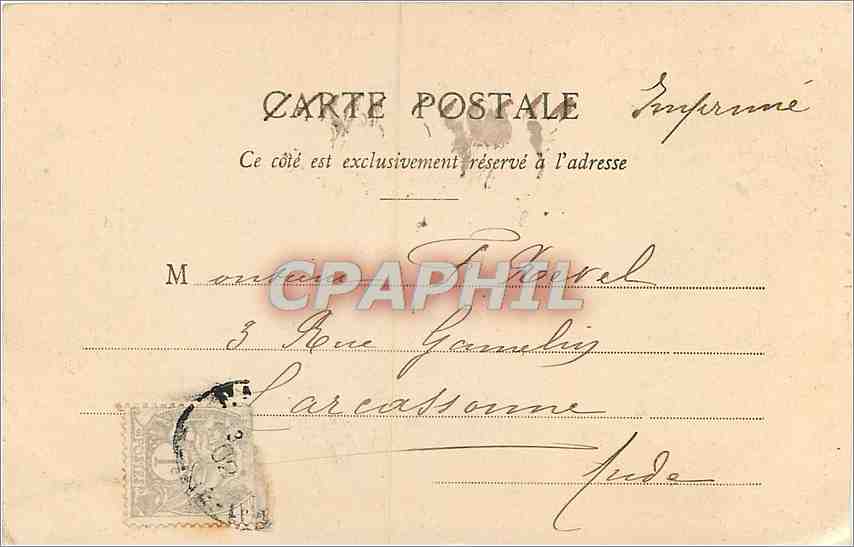 CARTE POSTALE
Imprimé
Ce côté est exclusivement réservé à l'adresse
Monsieur F.
CPAPHIL
3 Rue Gamelin
Carcassonne
Aude
1